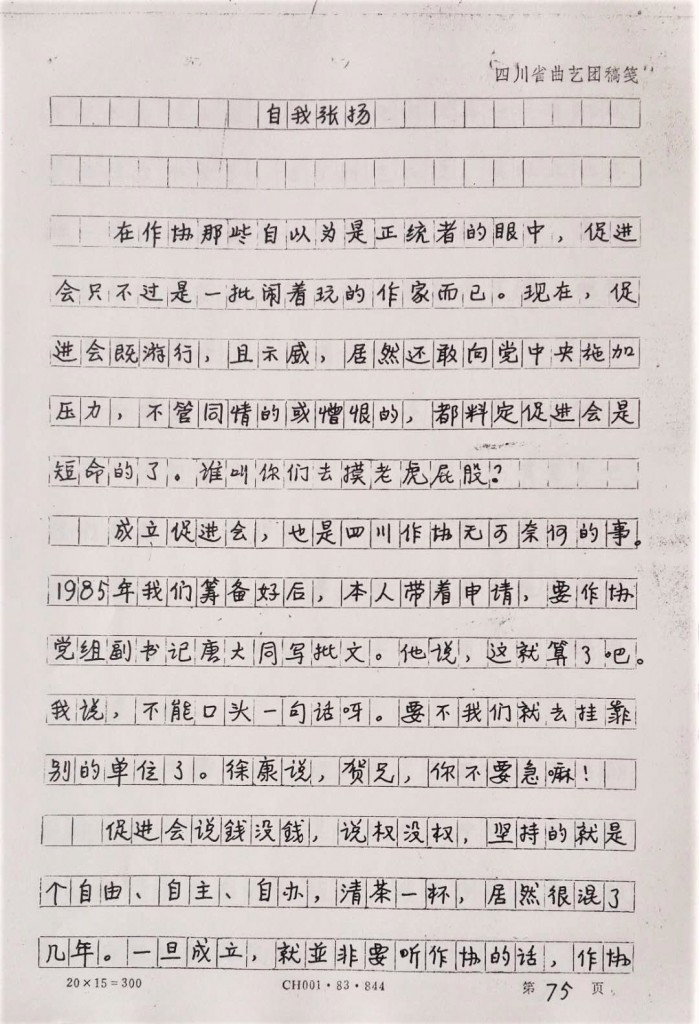 四川省曲艺团稿笺
自我张扬
在作协那些自以为是正统者的眼中，促进
会只不过是一批闹着玩的作家而已。现在，促
进会既游行，且示威，居然还敢向党中央施加
压力，不管同情的或憎恨的，都料定促进会是
短命的了。谁叫你们去摸老虎屁股？
成立促进会，也是四川作协无可奈何的事。
1985年我们筹备好后，本人带着申请，要作协
党组副书记唐大同写批文。他说，这就算了吧。
我说，不能口头一句话呀。要不我们就去挂靠
别的单位了。徐康说，贺兄，你不要急嘛！
促进会说錢没錢，说权没权，坚持的就是
个自由、自主、自办，清茶一杯，居然很混了
几年。一旦成立，就並非要听作协的话，作协
20×15=300 CH001·83·844 第75页